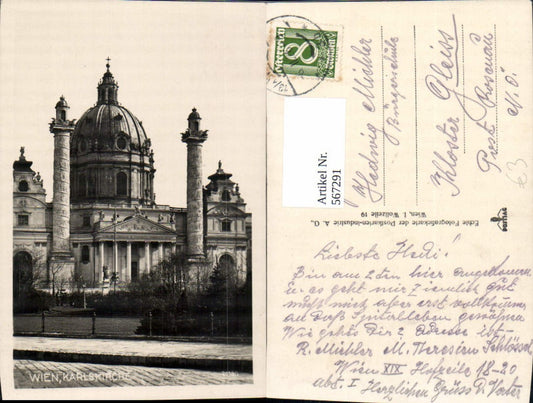 WIEN, KARLSKIRCHE
8
Artikel Nr.
567291
Hedwig Michler
Bürgerschule
Kloster Gleiss
Post Rosenau
N. Ö.
€3
Echte Fotografiekarte der Postkarten-Industrie A. G.,
Wien, I. Wollzeile 19
Liebste Hedi!
Bin am 2ten hier angekommen
es geht mir ziemlich gut
muß mich aber erst vollkommen
an das Spitalleben gewöhnen
Wie gehts Dir? Adresse ist
R. Michler M. Theresien Schlössel
Wien XIX Hofzeile 18-20
abt. I Herzlichen Gruss D. Vater